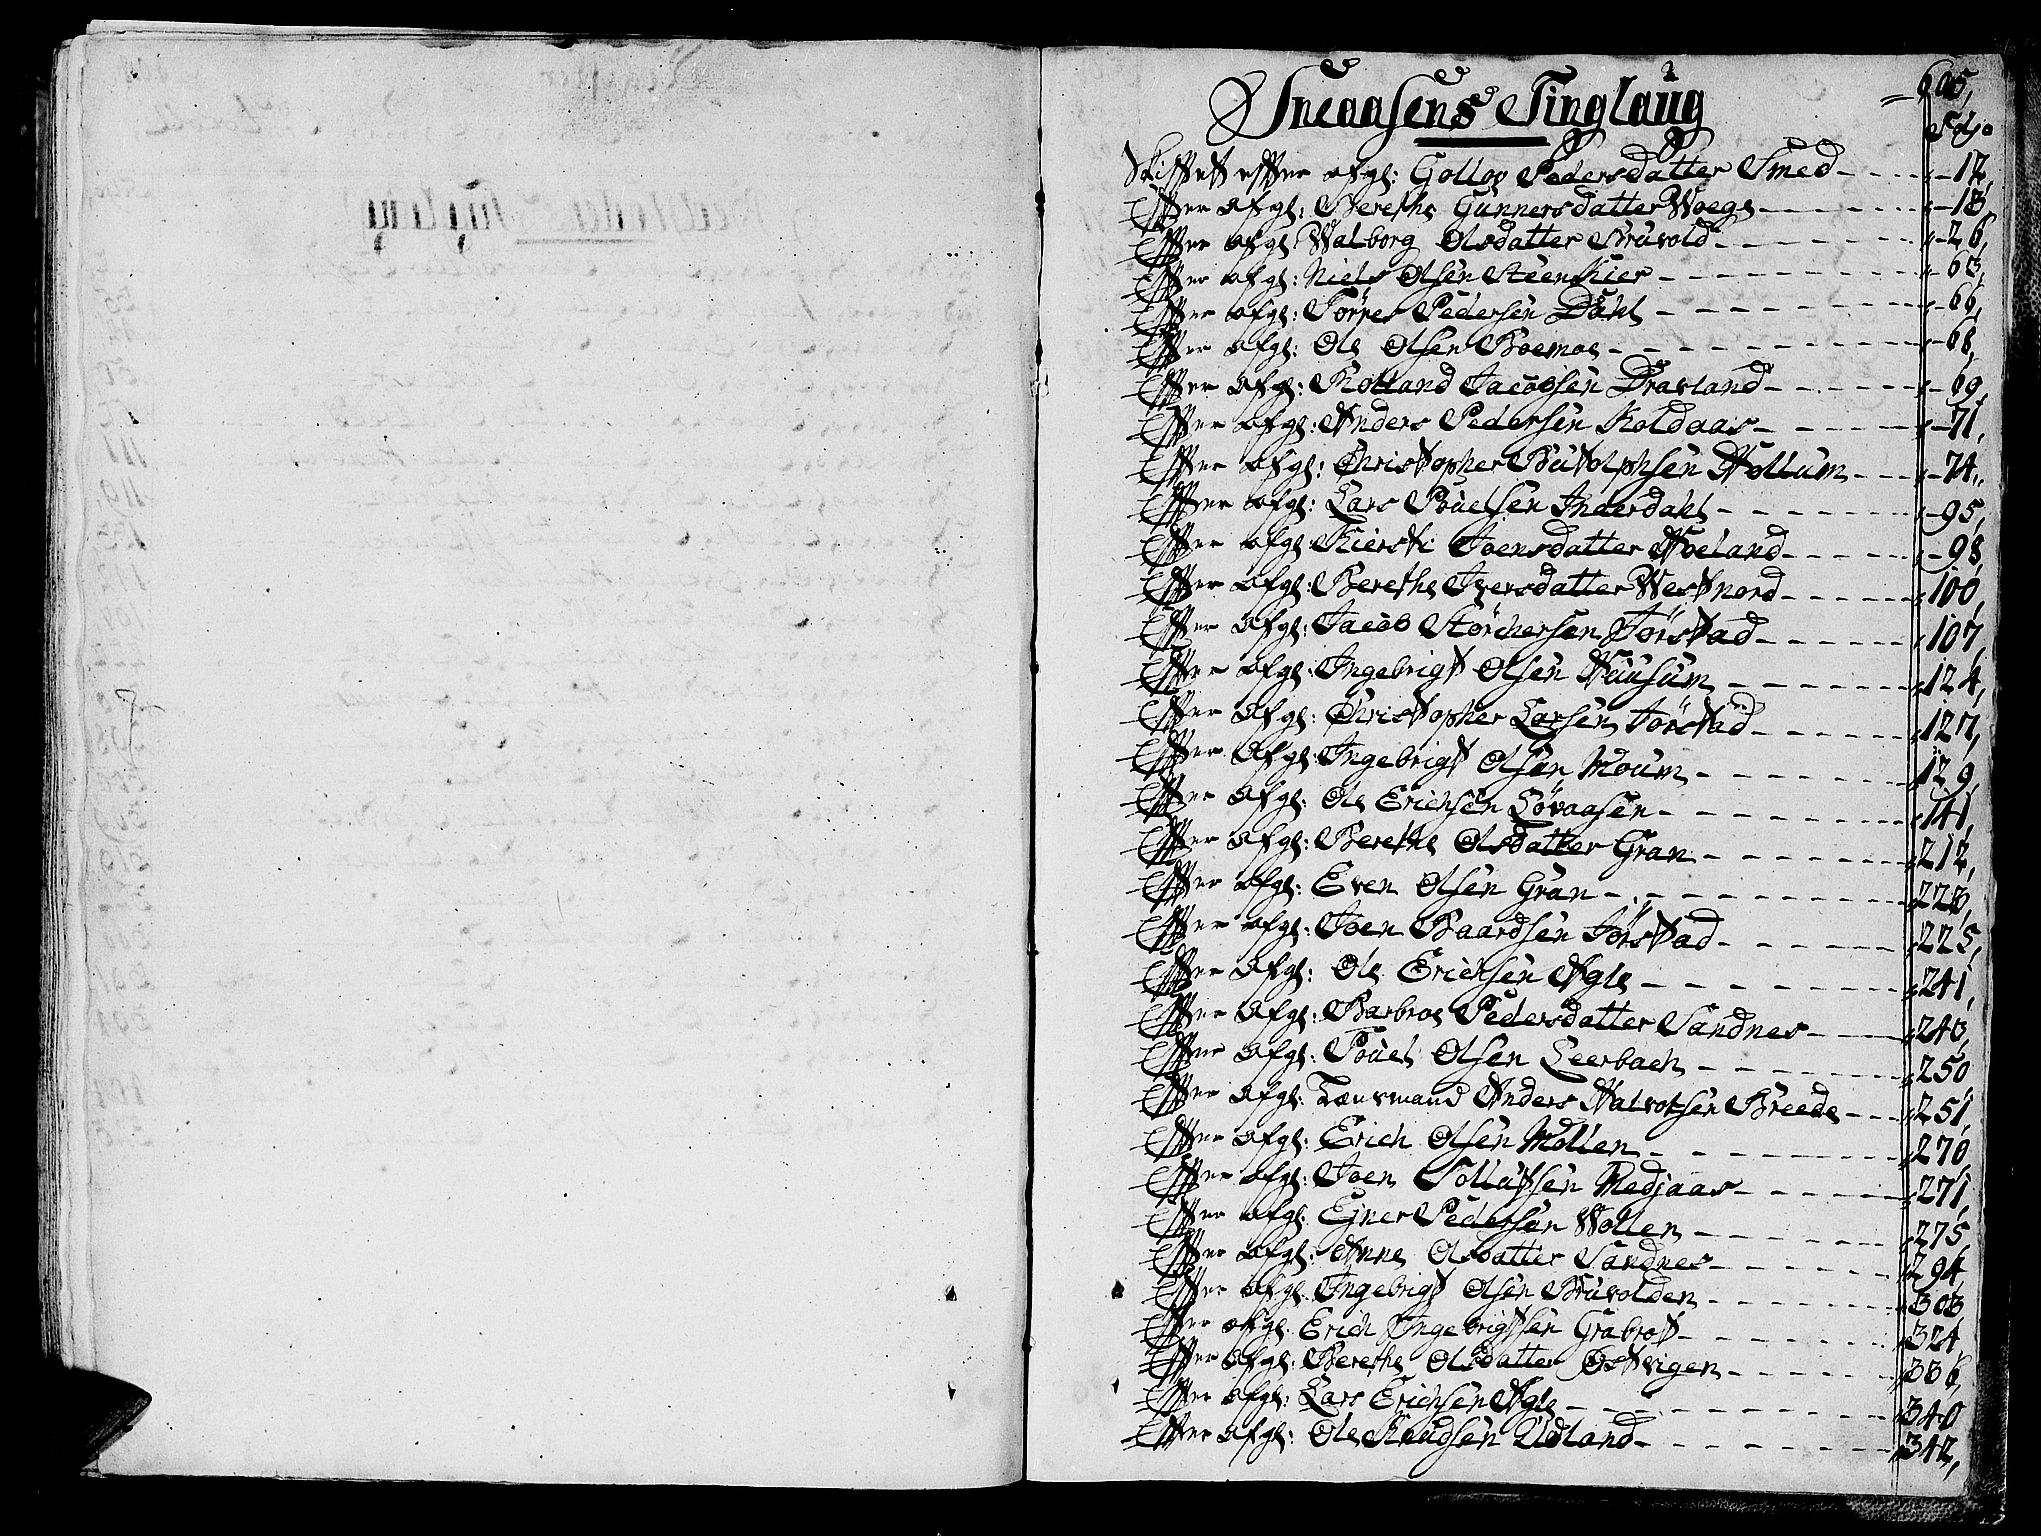 605,
Sneaasens Tinglaug
Folio
Skifftet effter afgl: Gollog Pedersdatter Smed - 12,
Effter afgl: Berethe Gunnersdatter Woege - 18,
Effter afgl: Walborg Olsdatter Bruvold - 26,
Effter afgl: Niels Olsen Steenkier - 63,
Effter afgl: Törres Pedersen Dahl - 66,
Effter afgl: Ole Olsen Boemoe - 68,
Effter afgl: Rolland Jacobsen Dravland - 69,
Effter afgl: Anders Pedersen Koldaas - 71,
Effter afgl: Christopher Butolphsen Hollum - 74,
Effter afgl: Lars Pouelsen Inderdahl - 95,
Effter afgl: Kiersti Joensdatter Hoeland - 98,
Effter afgl: Berethe Iversdatter Westnord - 100,
Effter afgl: Jacob Störchersen Jörstad - 107,
Effter afgl: Ingebrigt Olsen Huusum - 124,
Effter afgl: Christopher Larsen Jörstad - 127,
Effter afgl: Ingebrigt Olsen Moum - 129,
Effter afgl: Ole Erichsen Lövaasen - 141,
Effter afgl: Berethe Olsdatter Gran - 212,
Effter afgl: Even Olsen Gran - 223,
Effter afgl: Joen Baardsen Jörstad - 225,
Effter afgl: Ole Erichsen Agle - 241,
Effter afgl: Barbroe Pedersdatter Sandnes - 243,
Effter afgl: Pouel Olsen Leerbach - 250,
Effter afgl: Lensmand Anders Halvorsen Breede - 251,
Effter afgl: Erich Olsen Mollen - 270,
Effter afgl: Joen Tollufsen Medjaas - 271,
Effter afgl: Ejner Pedersen Wollen - 275,
Effter afgl: Anne Olsdatter Sandnes - 294,
Effter afgl: Ingebrigt Olsen Bruvolden - 303,
Effter afgl: Erich Ingebrigtsen Grabrot - 324,
Effter afgl: Berethe Olsdatter Östvigen - 336,
Effter afgl: Lars Erichsen Agle - 340,
Effter afgl: Ole Knudsen Udland - 342,